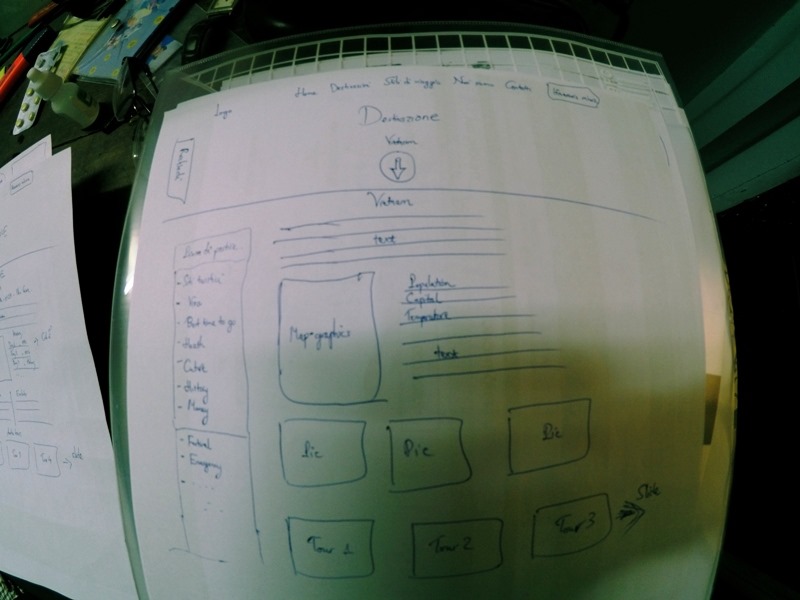 Home Destinazioni Stili di viaggio Noi siamo Contatti
Logo
Destinazione
Vietnam
Vietnam
text
- Siti turistici
- Visa
- Best time to go
- Health
- Culture
- History
- Money
- Festival
- Emergency
Map + graphics
Population
Capital
Temperature
text
Pic
Pic
Pic
Tour 1
Tour 2
Tour 3
Slide